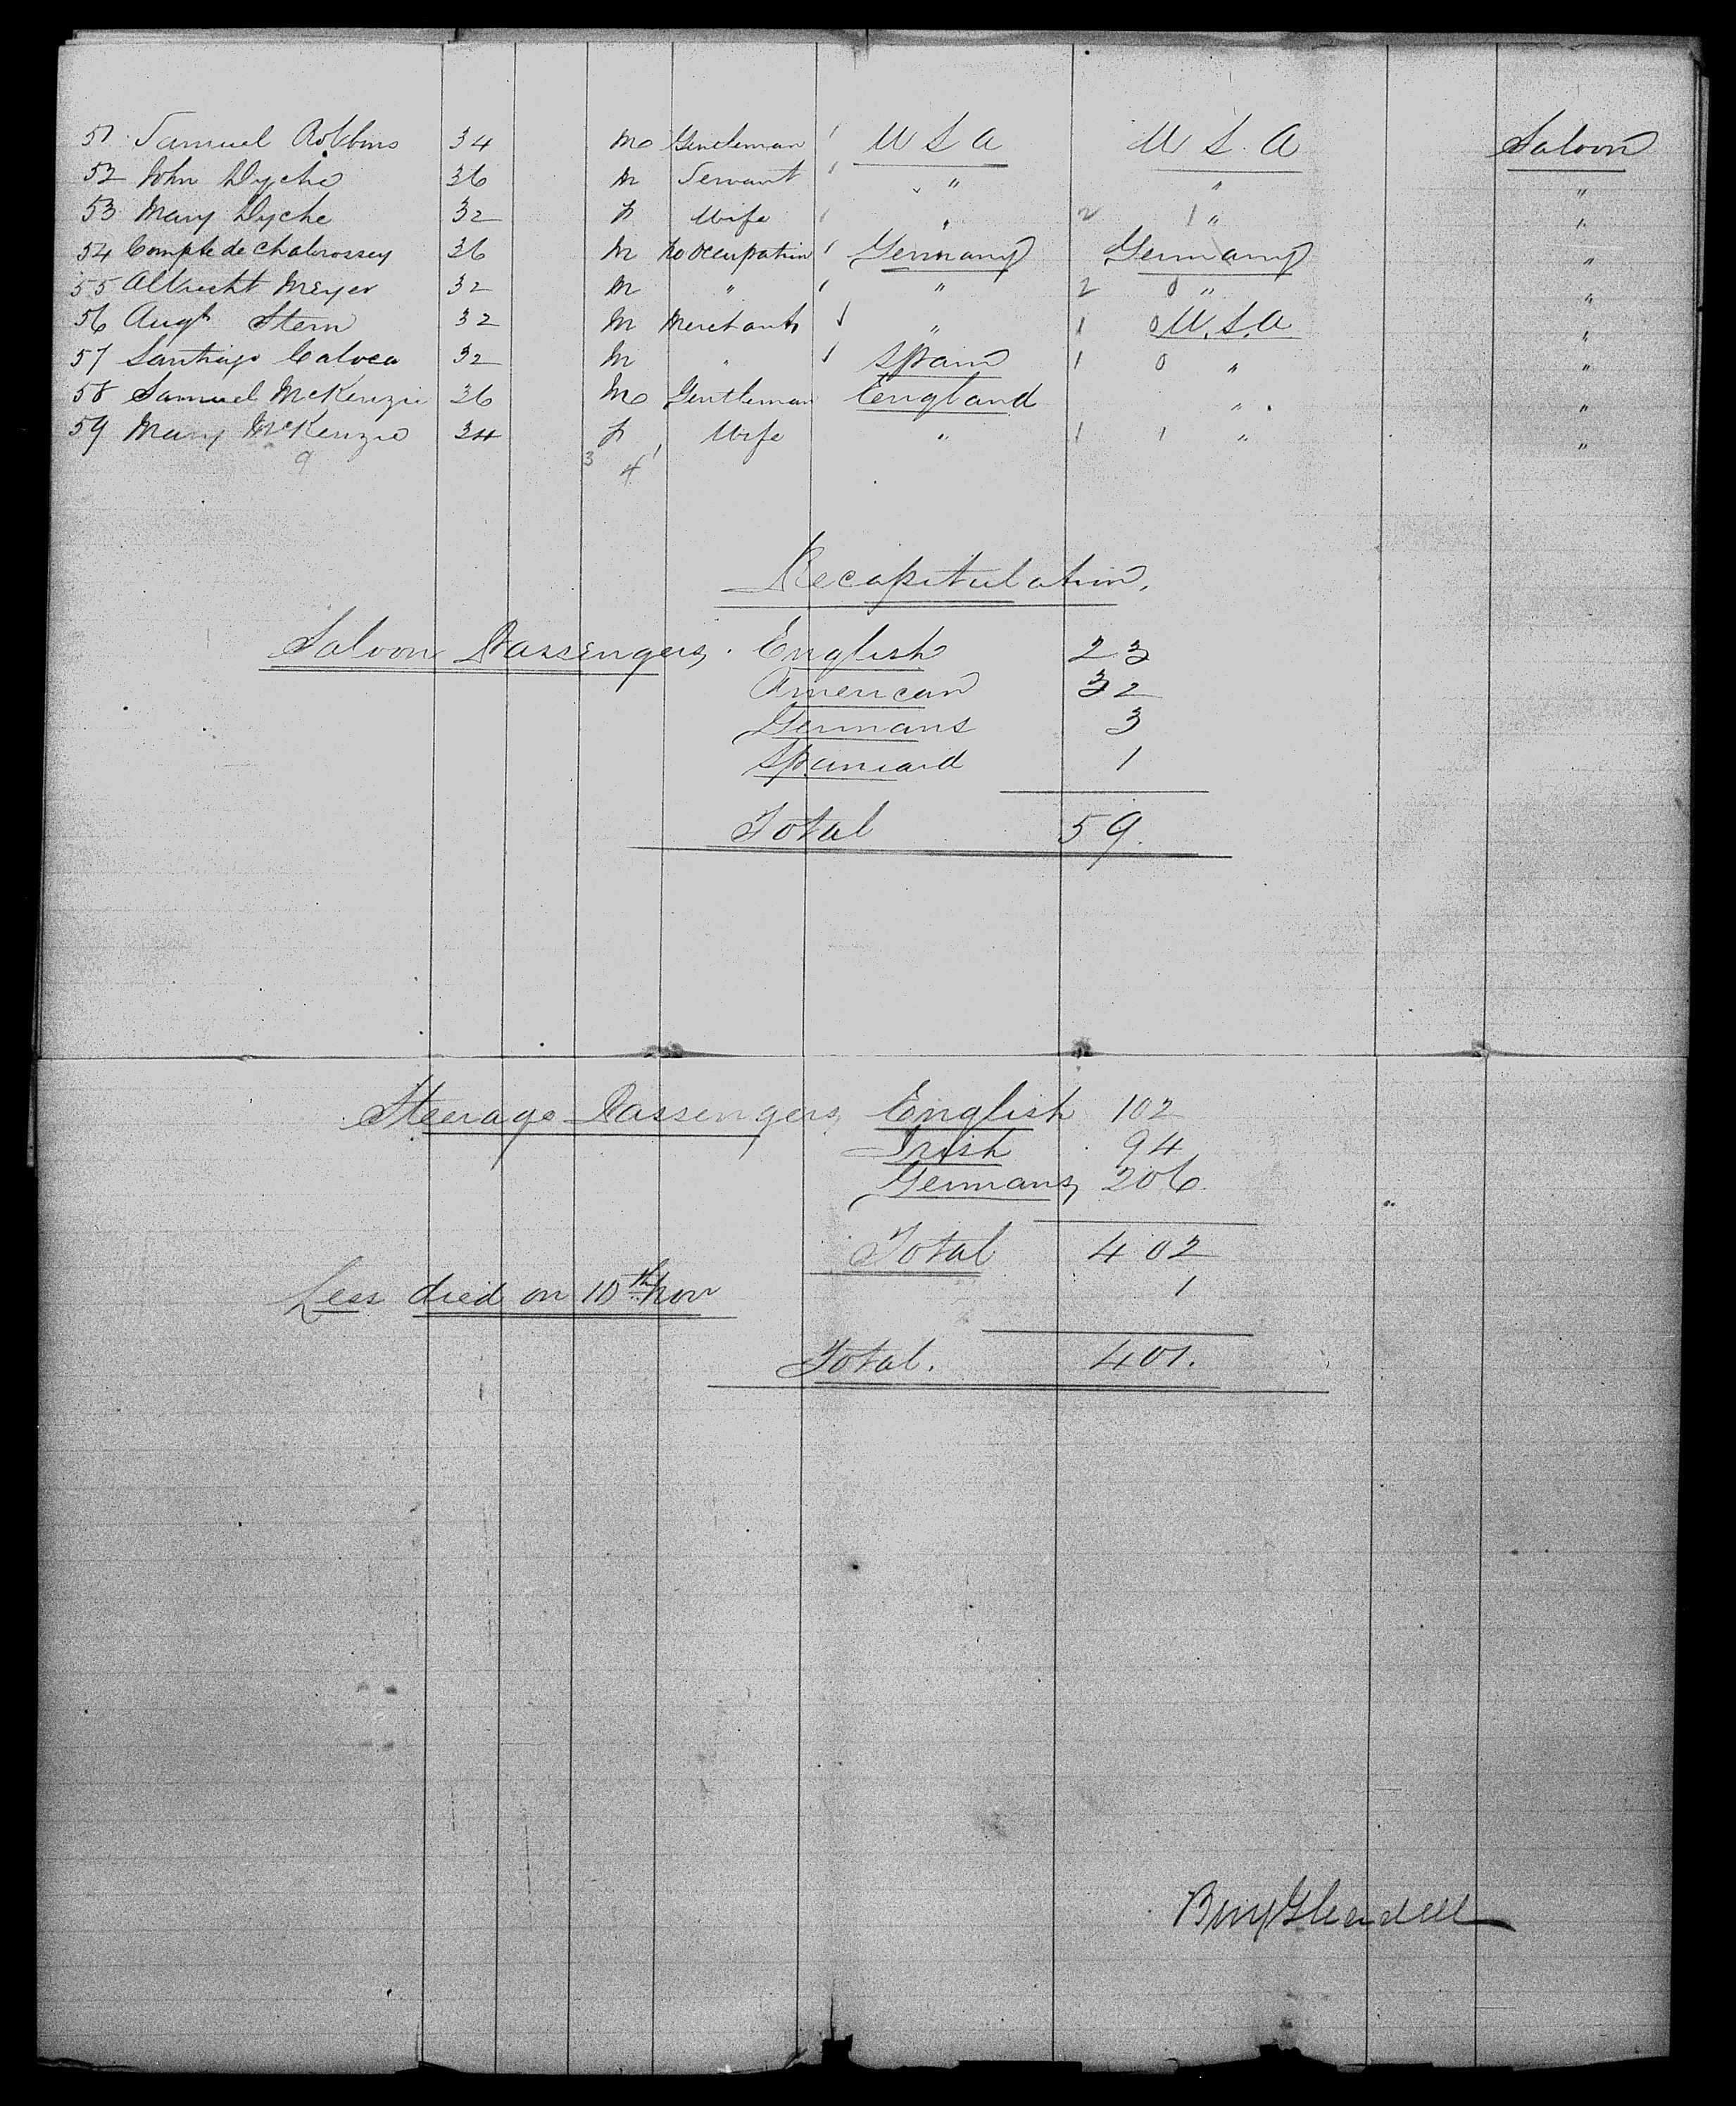 51 Samuel Robbins 34 M Gentleman 1 U S A U S. A Saloon
52 John Dyche 36 M Servant 1 " " "
53 Mary Dyche 32 F Wife 1 " 2 1 " "
54 Compte de Chabrossey 36 M No Occupation 1 Germany Germany "
55 Albrecht Meyer 32 M " 1 " 2 0 " "
56 Augt Stern 32 M Merchant 1 " 1 0 U.S.A "
57 Santiago Calvea 32 M " 1 Spain 1 0 " "
58 Samuel McKenzie 36 M Gentleman England " "
59 Mary McKenzie 34 F Wife " 1 1 " "
9 3 4 1
Recapitulation.
Saloon Passengers. English 23
American 32
Germans 3
Spaniard 1
Total 59.
Steerage Passengers English 102
Irish 94
Germans 206
Total 402
Less died on 10th Nov 1
Total. 401.